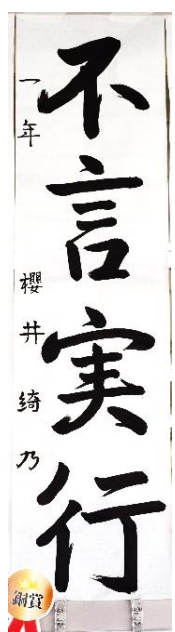 不言実行
一年 櫻井綺乃
銅賞